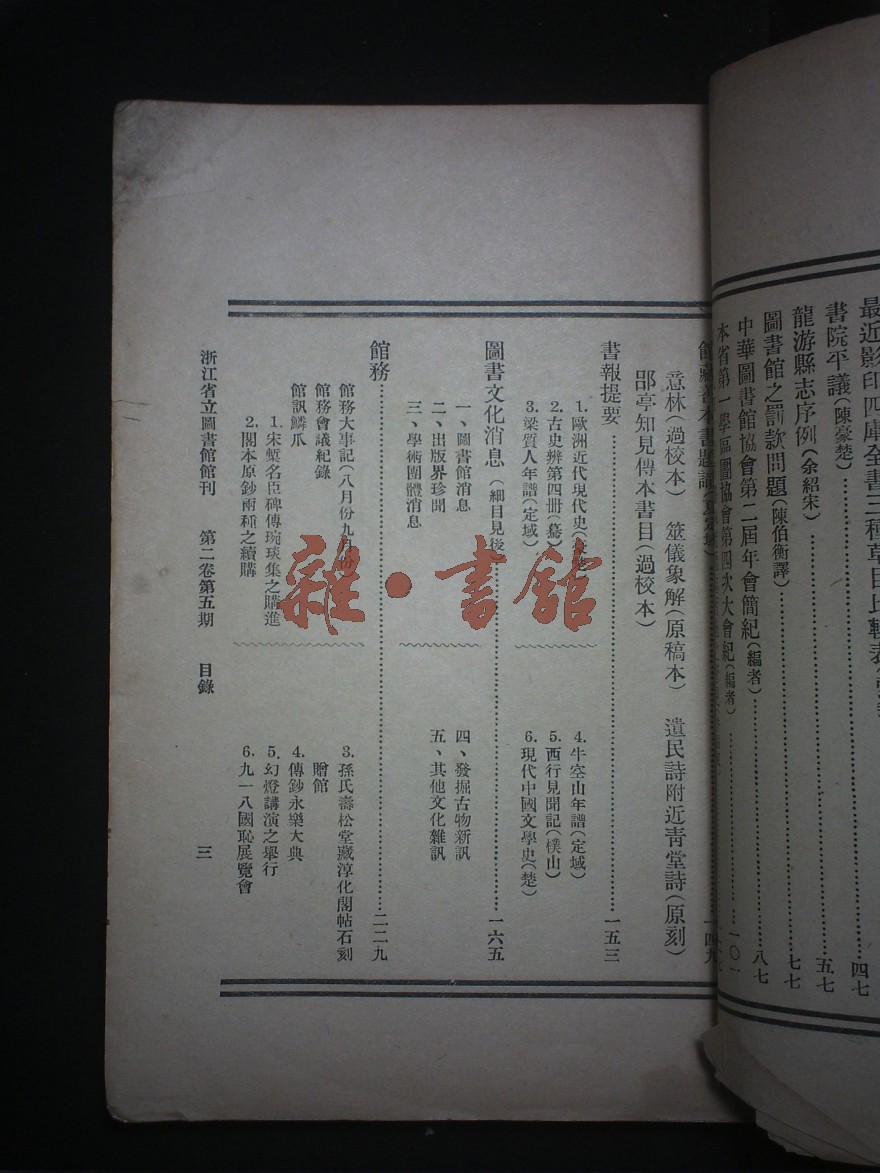 最近影印四庫全書三種草目比較表
四七
書院平議(陳豪楚)
五七
龍游縣志序例(余紹宋)
七七
圖書館之罰款問題(陳伯衡譯)
八七
中華圖書館協會第二屆年會簡紀(編者)
一〇一
本省第一學區圖協會第四次大會紀(編者)
館藏善本書題識
一四九
意林(過校本) 筮儀象解(原稿本) 遺民詩附近靑堂詩(原刻)
郘亭知見傳本書目(過校本)
書報提要
一五三
1. 歐洲近代現代史
4. 牛空山年譜(定域)
2. 古史辨第四册
5. 西行見聞記(樸山)
3. 梁質人年譜(定域)
6. 現代中國文學史(楚)
圖書文化消息(細目見後)
一六五
一、圖書館消息
四、發掘古物新訊
二、出版界珍聞
五、其他文化雜訊
三、學術團體消息
館務
二二九
館務大事記(八月份九月份)
館務會議紀錄
館訊鱗爪
1. 宋槧名臣碑傳琬琰集之購進
2. 閣本原鈔兩種之續購
3. 孫氏壽松堂藏淳化閣帖石刻
贈館
4. 傳鈔永樂大典
5. 幻燈講演之舉行
6. 九一八國恥展覽會
浙江省立圖書館館刊 第二卷第五期 目錄 三
雜·書館